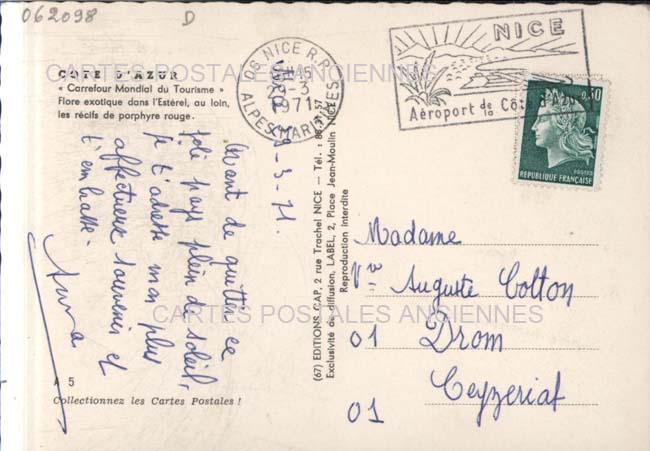 062098 D
COTE D'AZUR
« Carrefour Mondial du Tourisme »
Flore exotique dans l'Estérel, au loin,
les récifs de porphyre rouge.
06 NICE R.P.
-3
1971
ALPES MARITIMES
NICE
Aéroport de la Côte d'Azur
0,30
RÉPUBLIQUE FRANÇAISE
POSTES
8-3-71
Avant de quitter ce
joli pays plein de soleil,
je t'adresse mon plus
affectueux souvenir et
t'embrasse.
(67) EDITIONS GAP, 2 rue Trachel NICE — Tél.: 88.31.57
Exclusivité de diffusion, LABEL, 2, Place Jean-Moulin NICE
Reproduction interdite
Madame
Vve Auguste Cotton
01 Drom
01 Ceyzeriat
A 5
Collectionnez les Cartes Postales !
CARTES POSTALES ANCIENNES
CARTES POSTALES ANCIENNES